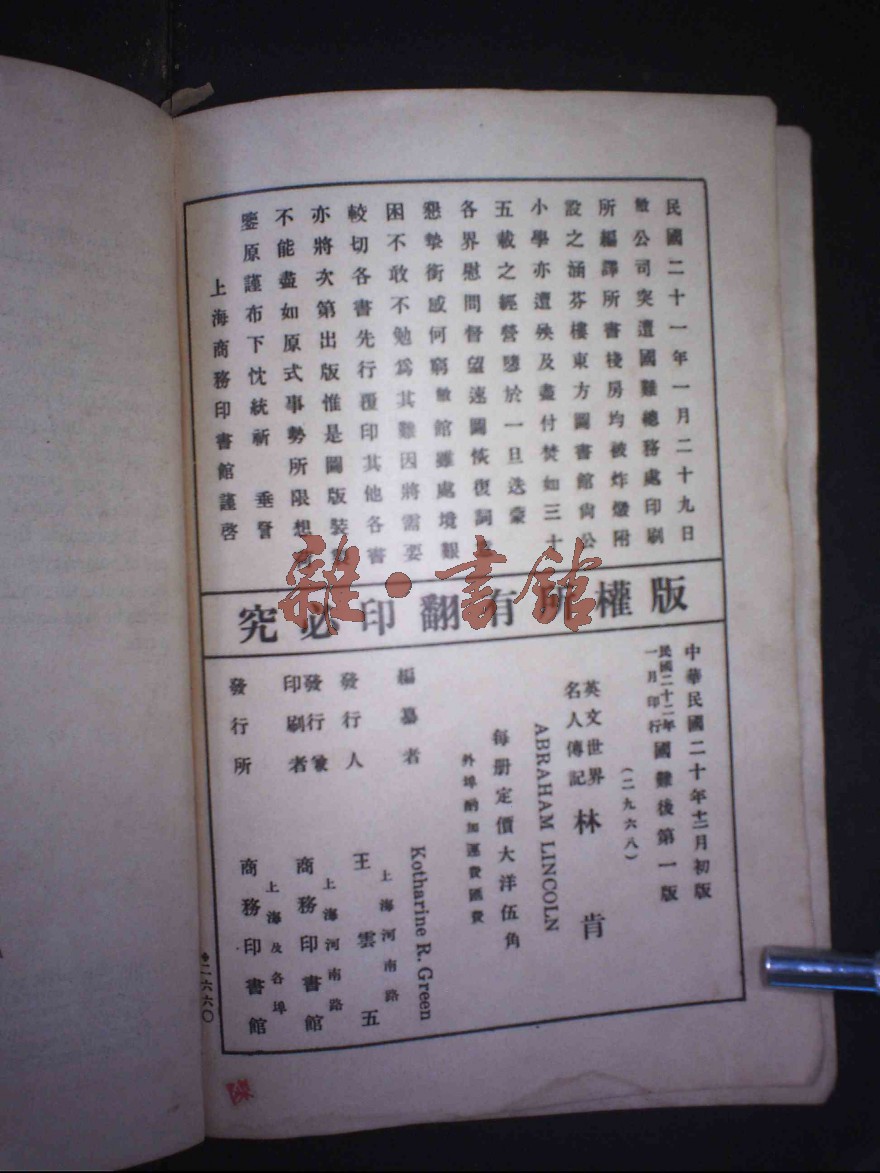 民國二十一年一月二十九日
敝公司突遭國難總務處印刷
所編譯所書棧房均被炸燬附
設之涵芬樓東方圖書館尙公
小學亦遭殃及盡付焚如三十
五載之經營隳於一旦迭蒙
各界慰問督望速圖恢復詞意
懇摯銜感何窮敝館雖處境艱
困不敢不勉爲其難因將需要
較切各書先行覆印其他各書
亦將次第出版惟是圖版裝
不能盡如原式事勢所限想
鑒原謹布下忱統祈 垂詧
上海商務印書館謹啓
版權所有翻印必究
雜·書館
中華民國二十年十二月初版
民國二十二年一月印行 國難後第一版
(二九六八)
英文世界名人傳記 林肯
ABRAHAM LINCOLN
每册定價大洋伍角
外埠酌加運費匯費
編纂者 Kotharine R. Green
發行人 王雲五
上海河南路
印刷者兼發行 商務印書館
上海河南路
發行所 商務印書館
上海及各埠
◆二六六〇